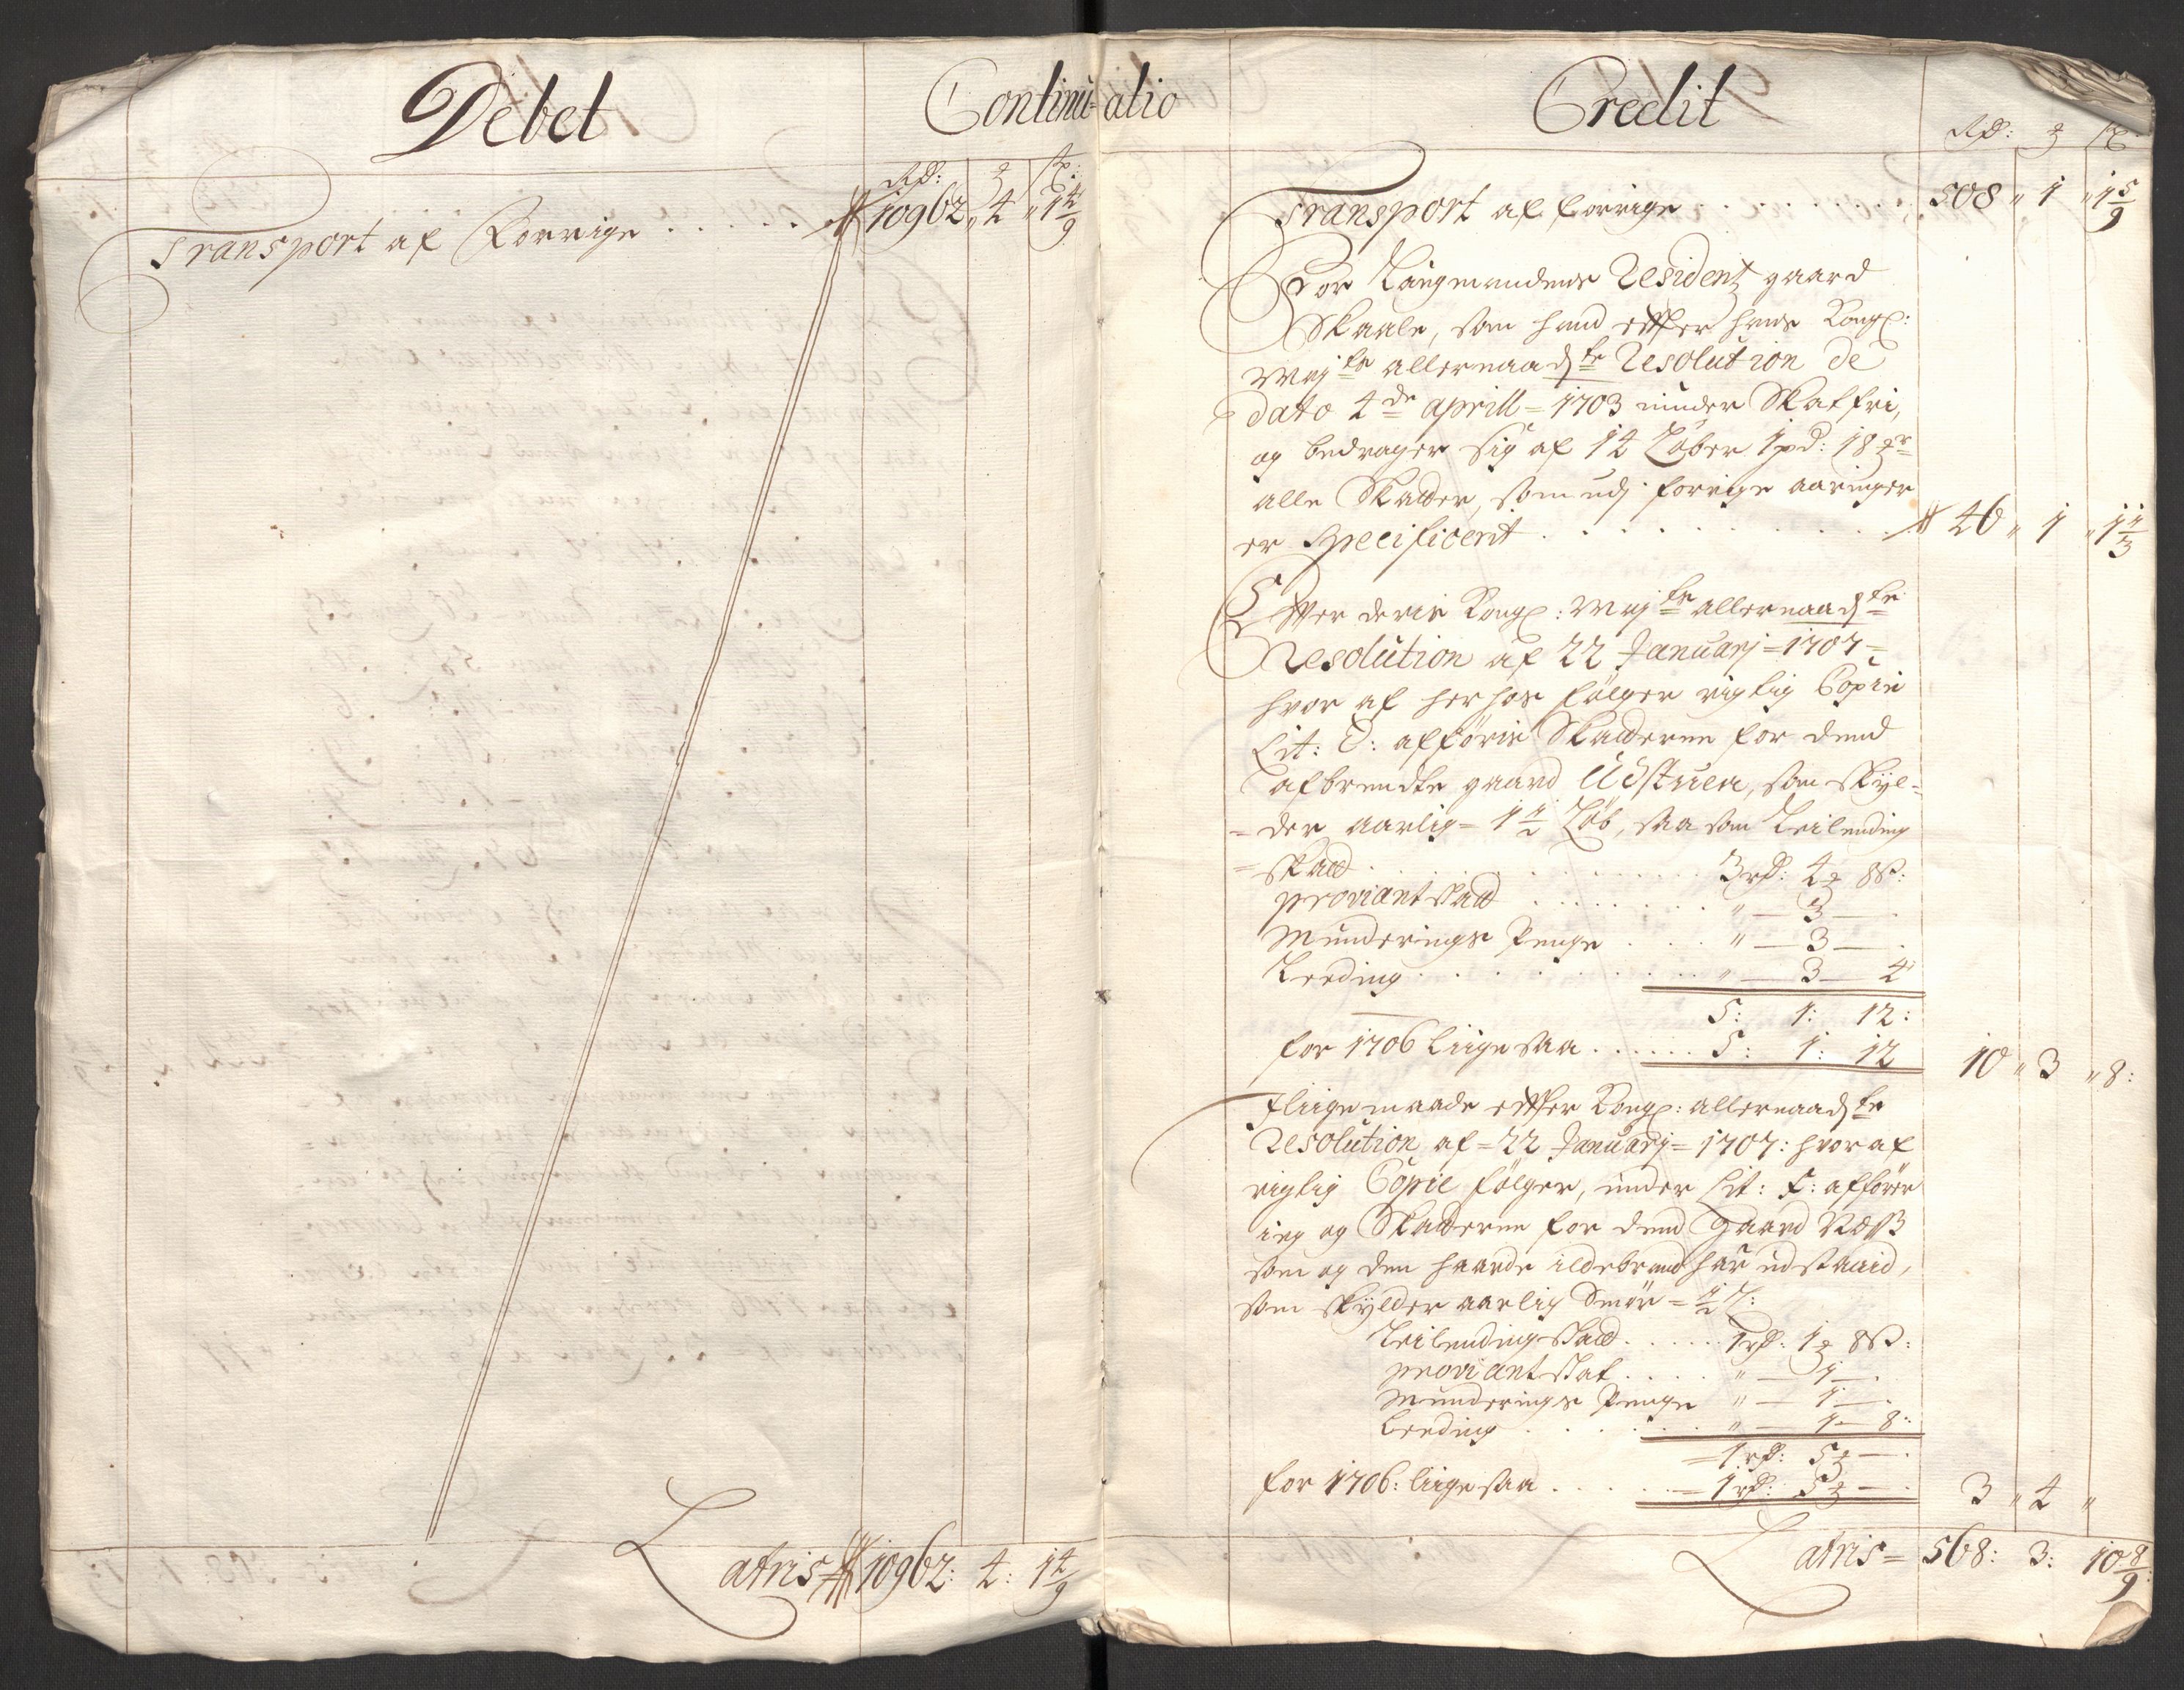 Debet
Continu-atio
Rd: # sk:
Transport af Forrige . . . . . 10962 " 4 " 1 4/9
Latris 10962: 4: 1 4/9
Credit
Rd: # sk:
Transport af forrige . . . . . . . 508 " 1 " 1 5/9
For Laugmandens Residentz gaard
Skaale, som hand efter hans Kongl:
Mayts allernaadste Resolution de
dato 4de Aprill = 1703 niuder Skatfri,
og bedrager sig af 14 Løber 1 pd: 18 #r
alle Skatter, som udj forrige aaringer
er Specificerit . . . . . . . . . 46 " 1 " 1 1/3
Efter deris Kongl: Mayts allernaadste
Resolution af 22 Januarj = 1707 =
hvor af her hos følger rigtig Copie
Lit: E: afføris Skatterne for dend
afbrendte gaard Udstuen, som skyl=
=der aarlig = 1 1/2 Løb, saa som Leilending
=skatt . . . . . . . . 3 rd: 4 # 8 s:
proviantskatt . . . . . . . " — 3 — .
Munderings Penge . . . . " — 3 — .
Leeding . . . . . . . . " — 3 — 4
5: 1: 12:
for 1706 liigesaa . . . . . . 5: 1: 12 10 " 3 " 8:
Iligemaade efter Kongl: allernaadste
Resolution af = 22 Januarj = 1707: hvor af
rigtig Copie følger, under Lit: F: affører
ieg og Skatterne for dend Gaard Næss
som og den haarde ildebrand har udstaaid,
som skylder aarlig Smør = 1/2 L:
Leilendingskatt . . . . . 1 rd: 1 # 8 s:
proviantskat . . . . . " — 1 — .
Munderings Penge " — 1 — .
Leeding . . . . . . " — 1 — 8:
= 1 rd: 5 # — .
for 1706: liigesaa . . . . . = 1 rd: 5 # — . 3 " 4 "
Latris = 568: 3: 10 8/9: